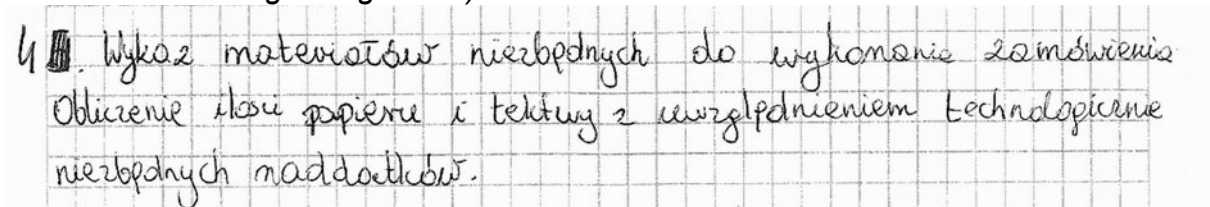 4. Wykaz materiałów niezbędnych do wykonania zamówienia
Obliczenie ilości papieru i tektury z uwzględnieniem technologicznie
niezbędnych naddatków.